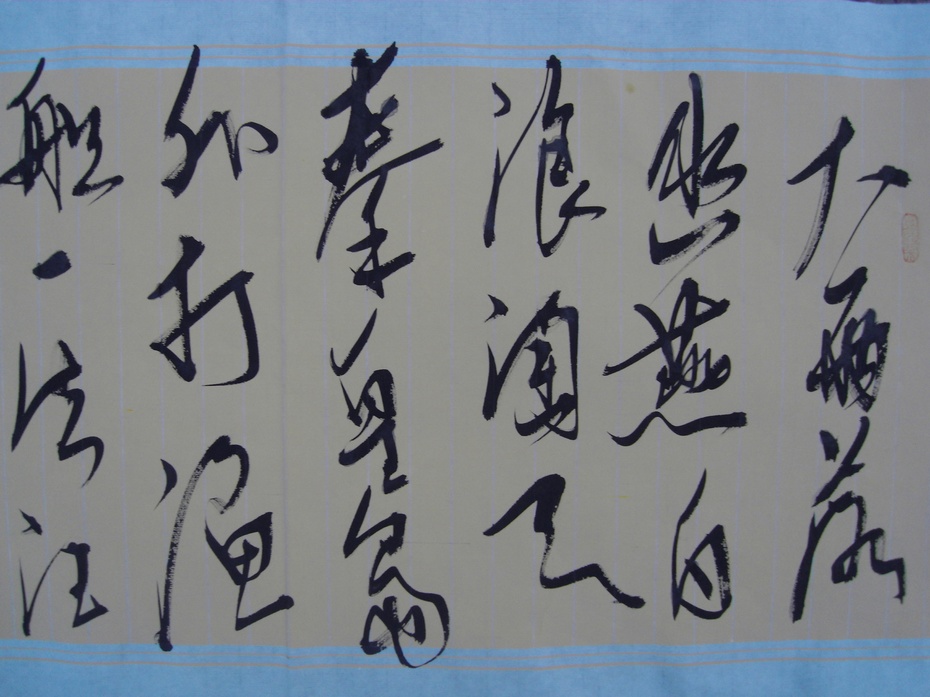 大雨落
幽燕白
浪滔天
秦皇島
外打漁
船一片汪